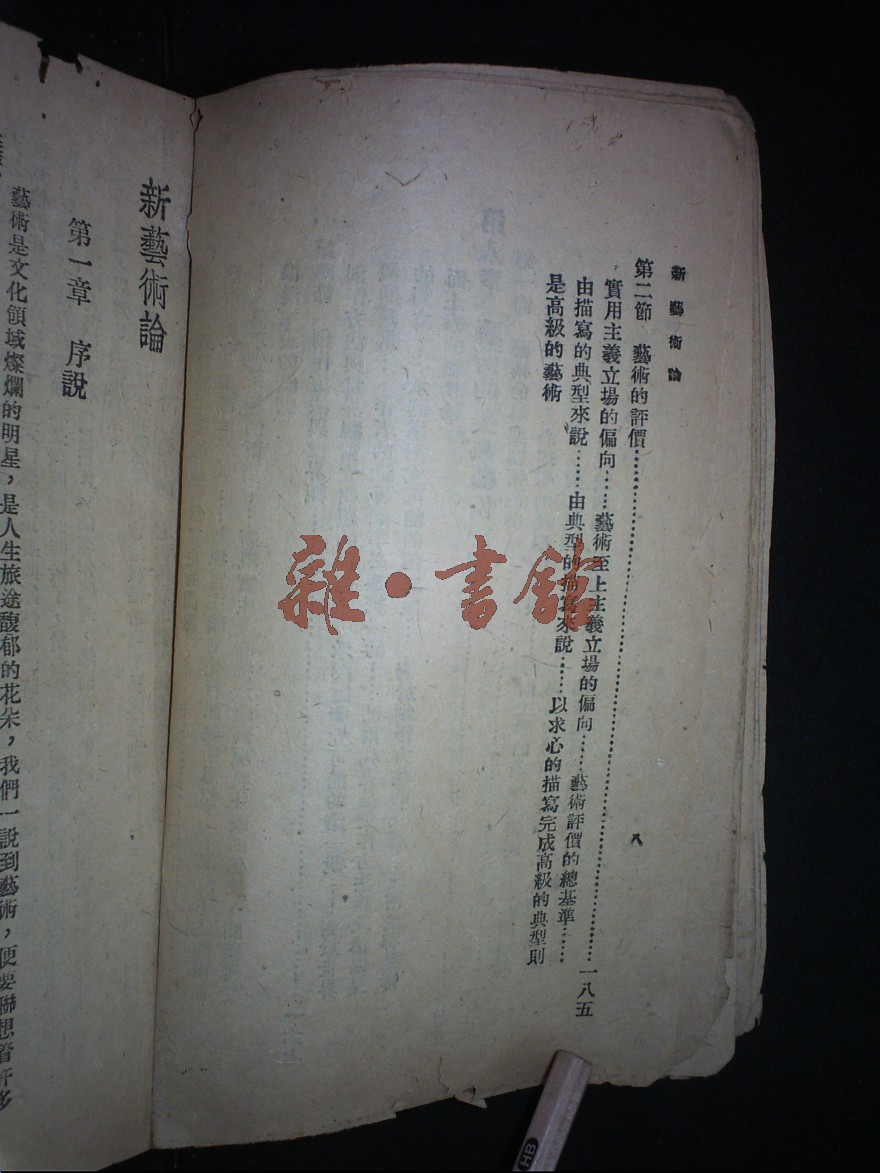 新藝術論
第二節　藝術的評價……一八五
實用主義立場的偏向……藝術至上主義立場的偏向……藝術評價的總基準……
由描寫的典型來說……由典型的描寫來說……以求心的描寫完成高級的典型則
是高級的藝術
八
新藝術論
第一章　序說
藝術是文化領域燦爛的明星，是人生旅途馥郁的花朵，我們一說到藝術，便要聯想着許多
雜·書館
HB